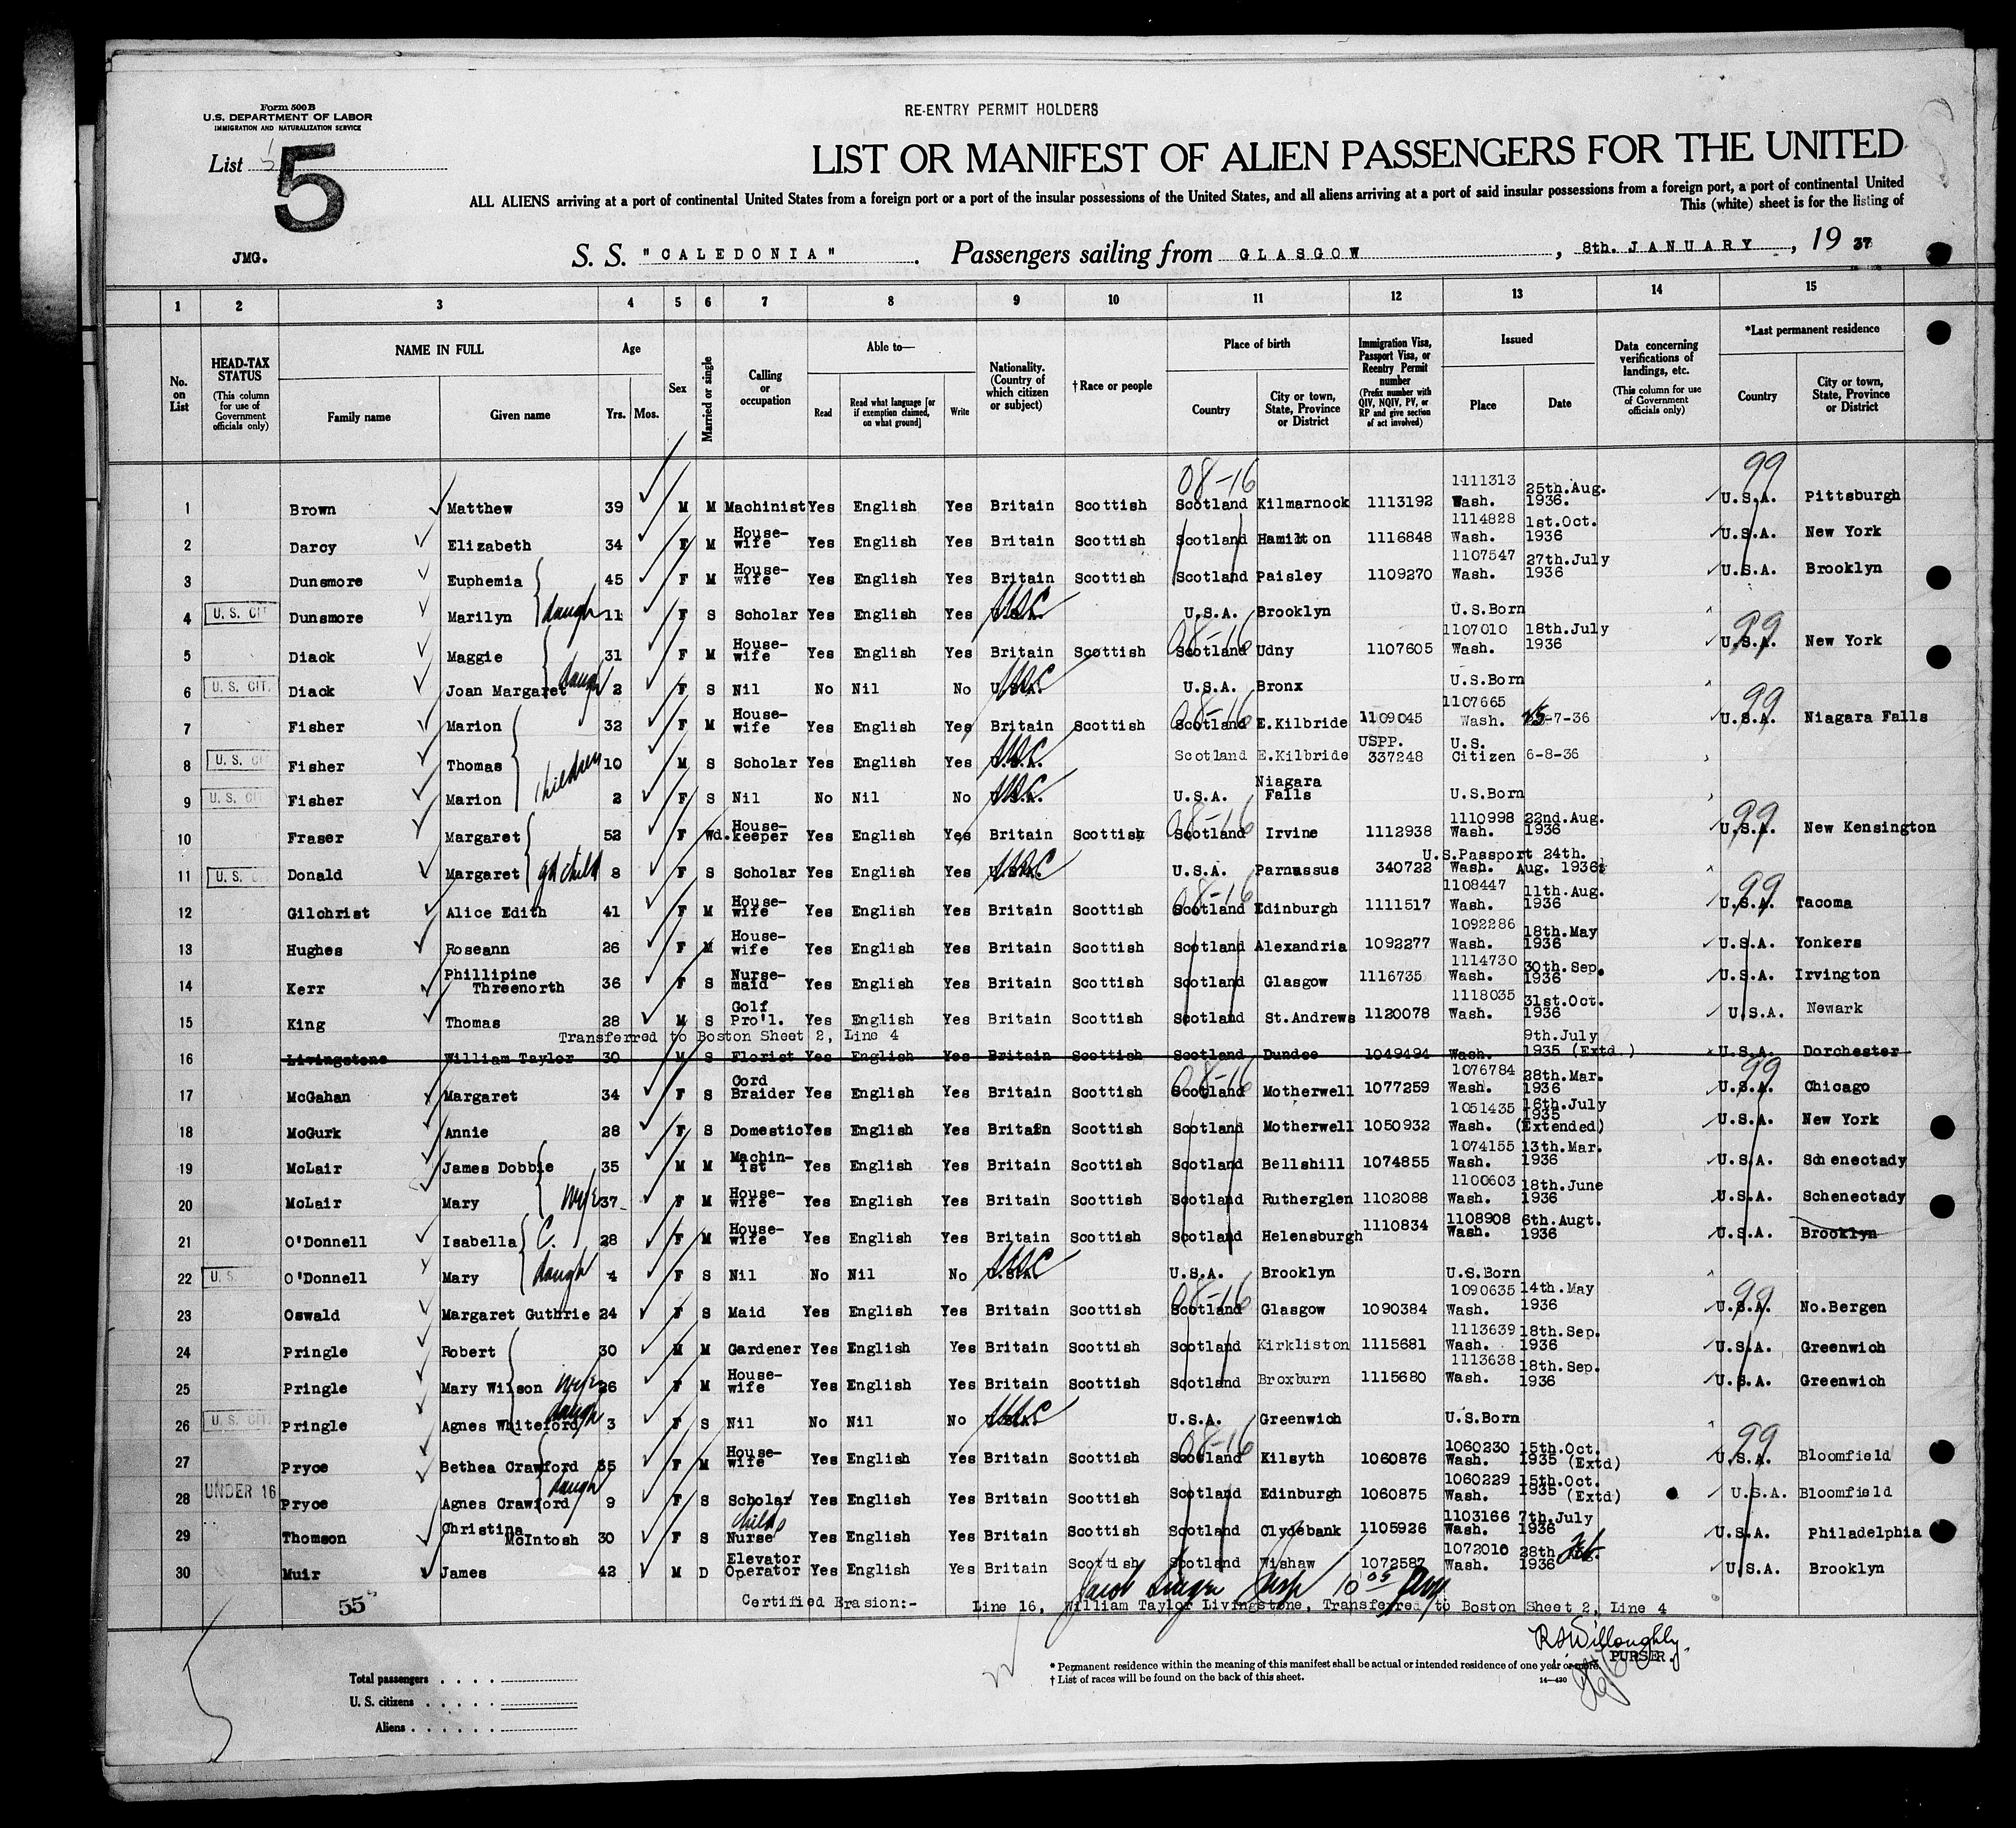 Form 500 B
U.S. DEPARTMENT OF LABOR
IMMIGRATION AND NATURALIZATION SERVICE
RE-ENTRY PERMIT HOLDERS
List 5
5
LIST OR MANIFEST OF ALIEN PASSENGERS FOR THE UNITED
ALL ALIENS arriving at a port of continental United States from a foreign port or a port of the insular possessions of the United States, and all aliens arriving at a port of said insular possessions from a foreign port, a port of continental United
This (white) sheet is for the listing of
JMG.
S. S. "CALEDONIA". Passengers sailing from GLASGOW, 8th. JANUARY, 19 37
1 2 3 4 5 6 7 8 9 10 11 12 13 14 15
No. on List
HEAD-TAX STATUS (This column for use of Government officials only)
NAME IN FULL Family name Given name
Age Yrs. Mos.
Sex
Married or single
Calling or occupation
Able to— Read Read what language [or if exemption claimed, on what ground] Write
Nationality. (Country of which citizen or subject)
† Race or people
Place of birth Country City or town, State, Province or District
Immigration Visa, Passport Visa, or Reentry Permit number (Prefix number with QIV, NQIV, PV, or RP and give section of act involved)
Issued Place Date
Data concerning verifications of landings, etc. (This column for use of Government officials only)
*Last permanent residence Country City or town, State, Province or District
1 Brown Matthew 39 M M Machinist Yes English Yes Britain Scottish 08-16 Scotland Kilmarnock 1113192 1111313 Wash. 25th.Aug. 1936. 99 U.S.A. Pittsburgh
2 Darcy Elizabeth 34 F M House-wife Yes English Yes Britain Scottish Scotland Hamilton 1116848 1114828 Wash. 1st.Oct. 1936 U.S.A. New York
3 Dunsmore Euphemia 45 F M House-wife Yes English Yes Britain Scottish Scotland Paisley 1109270 1107547 Wash. 27th.July 1936 U.S.A. Brooklyn
4 U. S. CIT Dunsmore Marilyn daugh 11 F S Scholar Yes English Yes U.S.A. USC U.S.A. Brooklyn U.S.Born
5 Diack Maggie 31 F M House-wife Yes English Yes Britain Scottish 08-16 Scotland Udny 1107605 1107010 Wash. 18th.July 1936 99 U.S.A. New York
6 U. S. CIT. Diack Joan Margaret daugh 2 F S Nil No Nil No U.S.A. USC U.S.A. Bronx U.S.Born
7 Fisher Marion 32 F M House-wife Yes English Yes Britain Scottish 08-16 Scotland E.Kilbride 1109045 1107665 Wash. 15-7-36 99 U.S.A. Niagara Falls
8 U. S. CI Fisher Thomas children 10 M S Scholar Yes English Yes U.S.A. USC Scotland E.Kilbride USPP. 337248 U.S. Citizen 6-8-36
9 U. S. CIT Fisher Marion 2 F S Nil No Nil No U.S.A. USC U.S.A. Niagara Falls U.S.Born
10 Fraser Margaret 52 F Wd. House-keeper Yes English Yes Britain Scottish 08-16 Scotland Irvine 1112938 1110998 Wash. 22nd.Aug. 1936 99 U.S.A. New Kensington
11 U. S. CI Donald Margaret gd child 8 F S Scholar Yes English Yes U.S.A. USC U.S.A. Parnassus 340722 U.S.Passport Wash. 24th. Aug. 1936
12 Gilchrist Alice Edith 41 F M House-wife Yes English Yes Britain Scottish 08-16 Scotland Edinburgh 1111517 1108447 Wash. 11th.Aug. 1936 99 U.S.A. Tacoma
13 Hughes Roseann 26 F M House-wife Yes English Yes Britain Scottish Scotland Alexandria 1092277 1092286 Wash. 18th.May 1936 U.S.A. Yonkers
14 Kerr Phillipine Threenorth 36 F S Nurse-maid Yes English Yes Britain Scottish Scotland Glasgow 1116735 1114730 Wash. 30th.Sep. 1936 U.S.A. Irvington
15 King Thomas 28 M S Golf Pro'l. Yes English Yes Britain Scottish Scotland St.Andrews 1120078 1118035 Wash. 31st.Oct. 1936 U.S.A. Newark
Transferred to Boston Sheet 2, Line 4
16 Livingstone William Taylor 30 M S Florist Yes English Yes Britain Scottish Scotland Dundee 1049494 Wash. 9th.July 1935 (Extd.) U.S.A. Dorchester
17 McGahan Margaret 34 F S Cord Braider Yes English Yes Britain Scottish 08-16 Scotland Motherwell 1077259 1076784 Wash. 28th.Mar. 1936 99 U.S.A. Chicago
18 McGurk Annie 28 F S Domestic Yes English Yes Britain Scottish Scotland Motherwell 1050932 1051435 Wash. 16th.July 1935 (Extended) U.S.A. New York
19 McLair James Dobbie 35 M M Machin-ist Yes English Yes Britain Scottish Scotland Bellshill 1074855 1074155 Wash. 13th.Mar. 1936 U.S.A. Schenectady
20 McLair Mary wife 37 F M House-wife Yes English Yes Britain Scottish Scotland Rutherglen 1102088 1100603 Wash. 18th.June 1936 U.S.A. Schenectady
21 O'Donnell Isabella C. 28 F M House-wife Yes English Yes Britain Scottish Scotland Helensburgh 1110834 1108908 Wash. 6th.Augt. 1936 U.S.A. Brooklyn
22 U. S. O'Donnell Mary daugh 4 F S Nil No Nil No U.S.A. USC U.S.A. Brooklyn U.S.Born
23 Oswald Margaret Guthrie 24 F S Maid Yes English Yes Britain Scottish 08-16 Scotland Glasgow 1090384 1090635 Wash. 14th.May 1936 99 U.S.A. No.Bergen
24 Pringle Robert 30 M M Gardener Yes English Yes Britain Scottish Scotland Kirkliston 1115681 1113639 Wash. 18th.Sep. 1936 U.S.A. Greenwich
25 Pringle Mary Wilson wife 26 F M House-wife Yes English Yes Britain Scottish Scotland Broxburn 1115680 1113638 Wash. 18th.Sep. 1936 U.S.A. Greenwich
26 U. S. CIT. Pringle Agnes Whiteford daugh 3 F S Nil No Nil No U.S.A. USC U.S.A. Greenwich U.S.Born
27 Pryce Bethea Crawford 35 F M House-wife Yes English Yes Britain Scottish 08-16 Scotland Kilsyth 1060876 1060230 Wash. 15th.Oct. 1935 (Extd) 99 U.S.A. Bloomfield
28 UNDER 16 Pryce Agnes Crawford daugh 9 F S Scholar Yes English Yes Britain Scottish Scotland Edinburgh 1060875 1060229 Wash. 15th.Oct. 1935 (Extd) U.S.A. Bloomfield
29 Thomson Christina McIntosh 30 F S Childs Nurse Yes English Yes Britain Scottish Scotland Clydebank 1105926 1103166 Wash. 7th.July 1936 U.S.A. Philadelphia
30 Muir James 42 M D Elevator Operator Yes English Yes Britain Scottish Scotland Wishaw 1072587 1072010 Wash. 28th. Feb. 1936 U.S.A. Brooklyn
55
Certified Erasion:- Line 16, William Taylor Livingstone, Transferred to Boston Sheet 2, Line 4
PURSER.
* Permanent residence within the meaning of this manifest shall be actual or intended residence of one year or more.
† List of races will be found on the back of this sheet.
14—430
Total passengers
U. S. citizens
Aliens